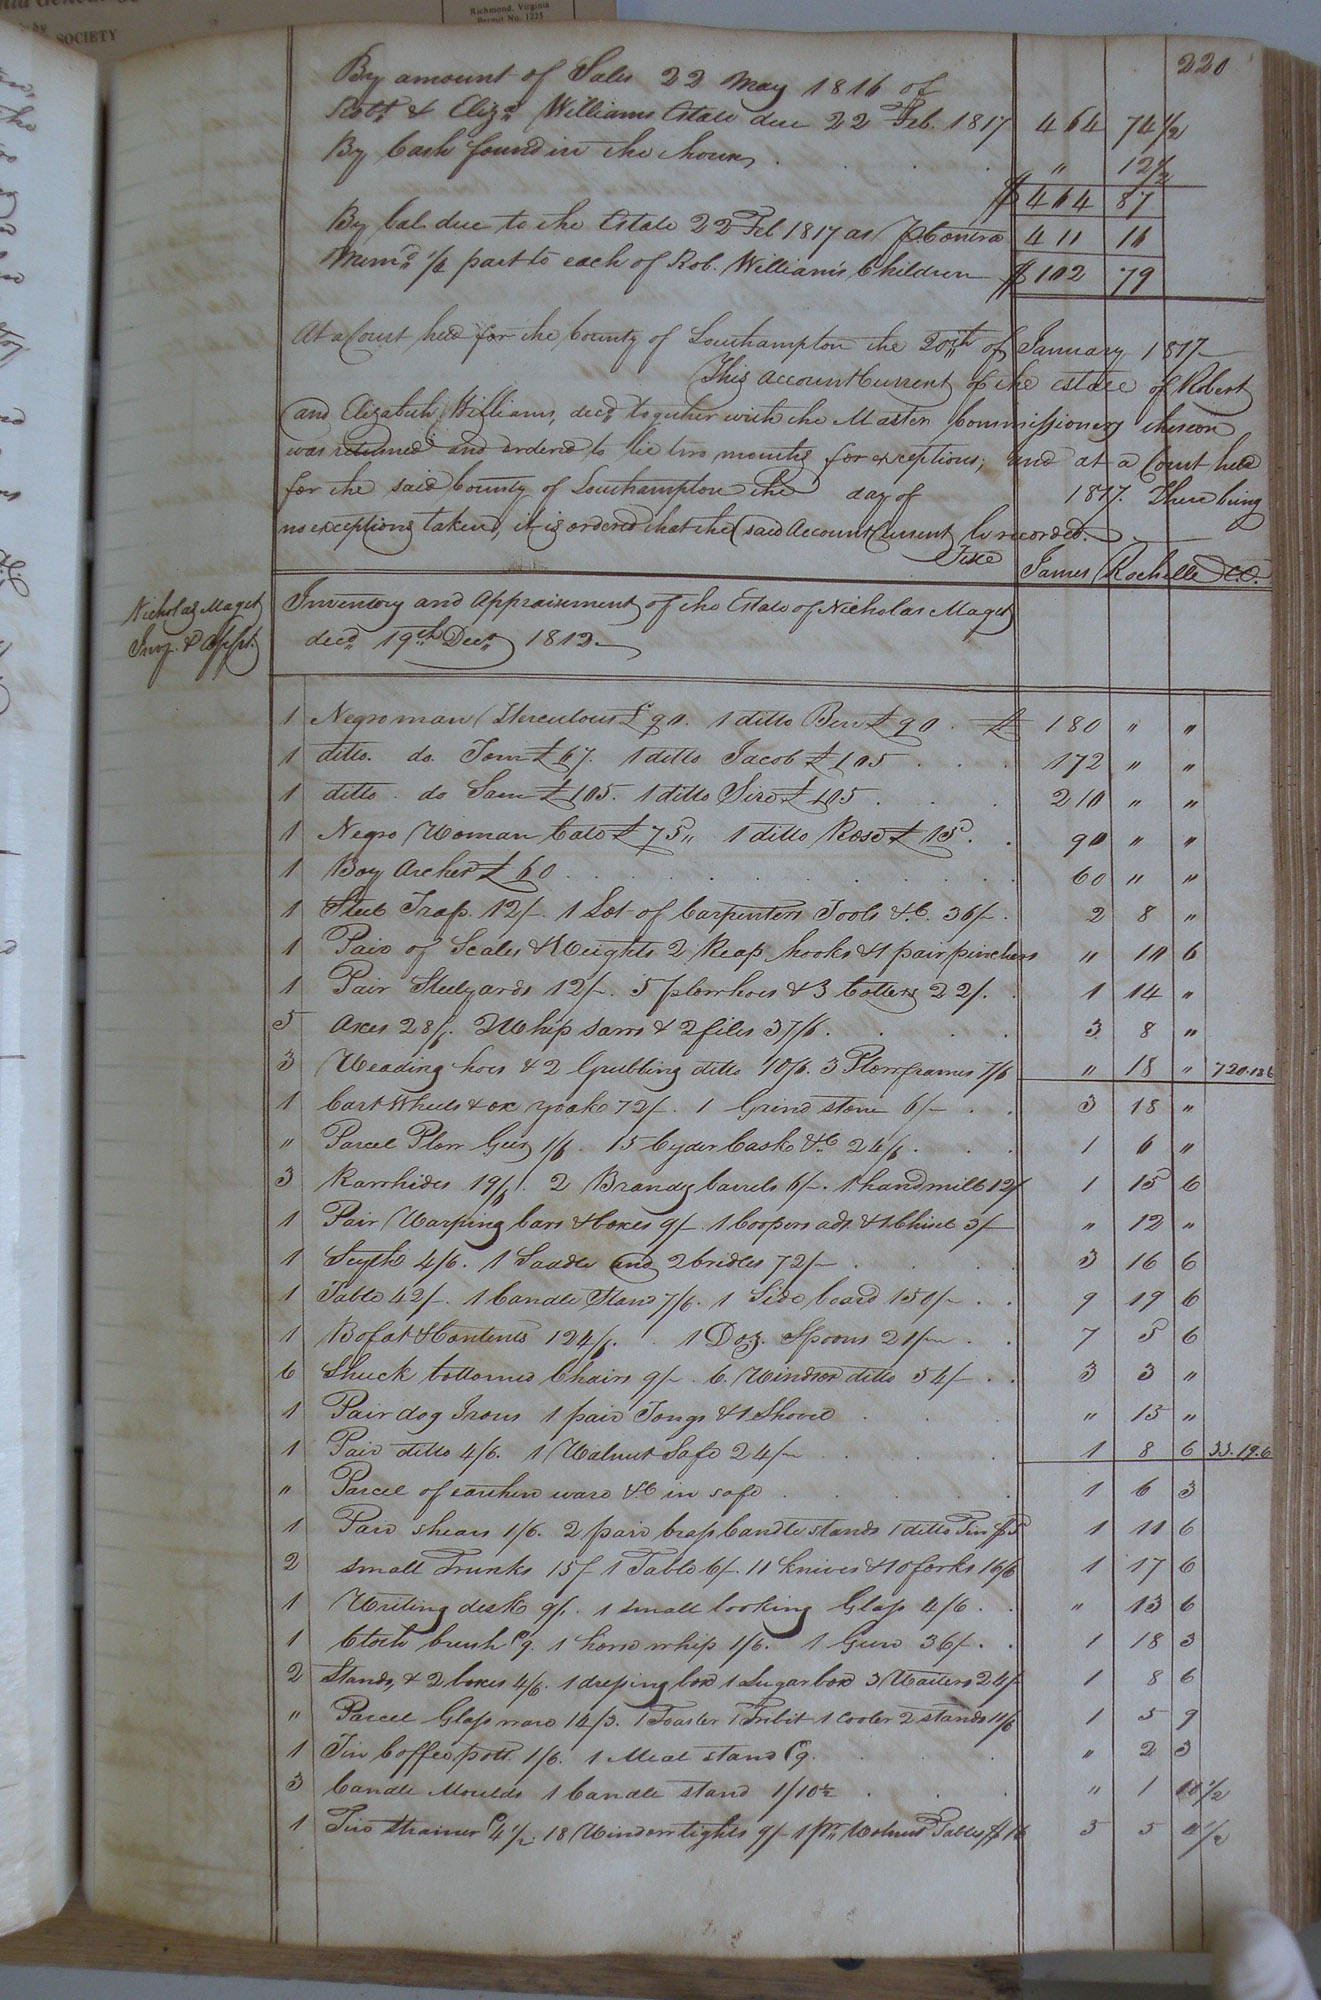 Richmond, Virginia
Permit No. 1225
SOCIETY
220
By amount of Sales 22 May 1816 of
Robt. & Eliza. Williams Estate due 22 Feb. 1817 464 74 1/2
By Cash found in the house . . . " 12 1/2
$ 464 87
By bal due to the Estate 22 Feb 1817 as P Contra 411 16
Mem. 1/4 part to each of Rob. Williams Children $ 102 79
At a Court held for the County of Southampton the 20th of January 1817
This Account Current of the estate of Robert
and Elizabeth Williams, decd. together with the Master Commissioners thereon
was returned and ordered to lie two months for exceptions; and at a Court held
for the said County of Southampton the day of 1817. There being
no exceptions taken, it is ordered that the said Account Current be recorded.
Teste James Rochelle C.C.
Nicholas Maget
Inv. & Appt.
Inventory and Appraisement of the Estate of Nicholas Maget
decd. 19th Decr. 1812
1 Negro man Herculous £90. 1 ditto Ben £90 . £ 180 " "
1 ditto. do. Tom £67. 1 ditto Jacob £105 . . . 172 " "
1 ditto do Sam £105. 1 ditto Sire £105 . . 210 " "
1 Negro Woman Cate £75 " 1 ditto Rose £15 . . 90 " "
1 Boy Archer £60 . . . 60 " "
1 Steel Trap. 12/. 1 Lot of Carpenters Tools &c. 36/. 2 8 "
1 Pair of Scales & Weights 2 Reap hooks & 1 pair pinchers " 10 6
1 Pair Steelyards 12/. 5 plow hoes & 3 Colters 22/. 1 14 "
5 Axes 28/. 2 Whip saws & 2 files 37/6 . . . 3 8 "
3 Weading hoes & 2 Grubbing ditto 10/6. 3 Plow frames 7/6 " 18 " 720.18.6
1 Cart Wheels & ox yoake 72/. 1 Grind stone 6/- . . 3 18 "
" Parcel Plow Geer 1/6. 15 Cyder Cask &c. 24/6 . . . 1 6 "
3 Rawhides 19/6. 2 Brandy barrels 6/-. 1 hand mill 12/ 1 15 6
1 Pair Warping bars & boxes 9/. 1 Coopers adz & 1 Chisel 3/- " 12 "
1 Scyth 4/6. 1 Saddle and 2 bridles 72/- . . . 3 16 6
1 Table 42/-. 1 Candle Stand 7/6. 1 Side board 150/- . . 9 19 6
1 Bofat & Contents 124/6. . 1 Doz. Spoons 21/- . . 7 5 6
6 Shuck bottomed Chairs 9/-. 6 Windsor ditto 54/- . . 3 3 "
1 Pair dog Irons 1 pair Tongs & 1 Shovel . . . " 15 "
1 Pair ditto 4/6. 1 Walnut Safe 24/- . . . 1 8 6 33.19.6
" Parcel of earthen ware &c in safe . . . 1 6 3
1 Pair shears 1/6. 2 pair brass Candle stands 1 ditto Tin 1 11 6
2 small Trunks 15/ 1 Table 6/-. 11 knives & 10 forks 16/6 1 17 6
1 Writing desk 9/. 1 small looking Glass 4/6 . . " 13 6
1 Cloth brush 9. 1 horse whip 1/6. 1 Gun 36/-. . 1 18 3
2 Stands, & 2 boxes 4/6. 1 dressing box 1 Sugar box 3 Waiters 24/ 1 8 6
" Parcel Glass ware 14/3. 1 Toaster 1 Tribit 1 Cooler 2 stands 11/6 1 5 9
1 Tin Coffee pott. 1/6. 1 Meal stand 9. . . " 2 3
3 Candle Moulds 1 Candle stand 1/10 1/2 . . . " 1 10 1/2
1 Tin Strainer 4 1/2. 18 Window lights 9/- 1 pr. Walnut Tables 3 5 4 1/2